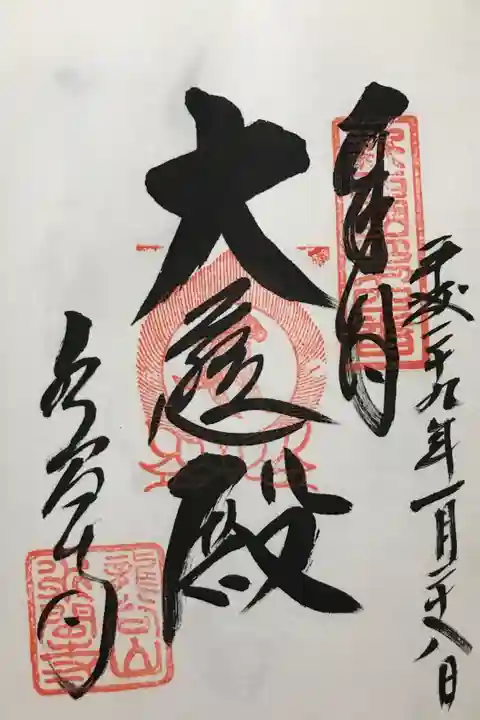 奉拝
平成二十九年一月二十八日
大慈殿
水間寺